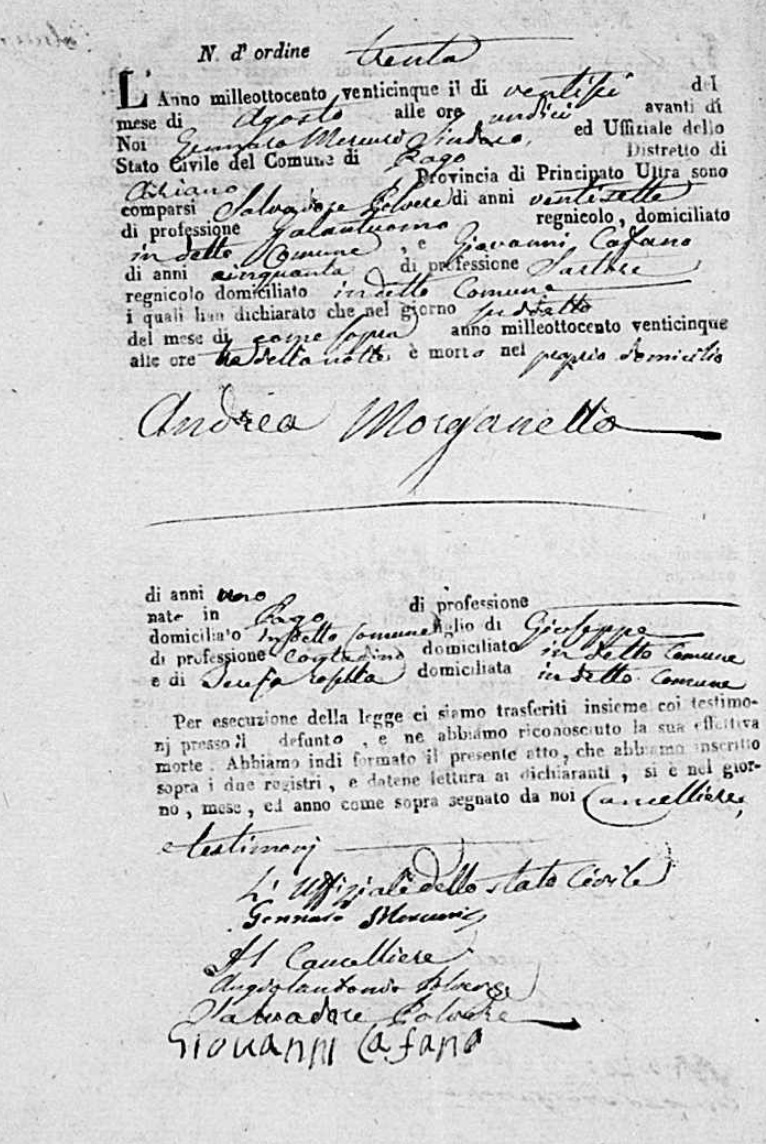 N. d'ordine trenta
L'Anno milleottocento venticinque il di ventisei del
mese di Agosto alle ore undici avanti di
Noi Gennaro Mercuro Sindaco, ed Uffiziale dello
Stato Civile del Comune di Pago Distretto di
Ariano Provincia di Principato Ultra sono
comparsi Salvadore Polvere di anni ventisette
di professione galantuomo regnicolo, domiciliato
in detto Comune, e Giovanni Cafano
di anni cinquanta di professione Sartore
regnicolo domiciliato in detto Comune
i quali han dichiarato che nel giorno suddetto
del mese di come sopra anno milleottocento venticinque
alle ore della notte è morto nel proprio domicilio
Andrea Morganella
di anni uno di professione
nato in Pago
domiciliato in detto Comune figlio di Giuseppe
di professione Contadino domiciliato in detto Comune
e di Teresa domiciliata in detto Comune
Per esecuzione della legge ci siamo trasferiti insieme coi testimo-
nj presso il defunto, e ne abbiamo riconosciuto la sua effettiva
morte. Abbiamo indi formato il presente atto, che abbiamo inscritto
sopra i due registri, e datene lettura ai dichiaranti, si è nel gior-
no, mese, ed anno come sopra segnato da noi Cancelliere,
e testimonj
L'Uffiziale dello stato Civile
Gennaro Mercuro
Il Cancelliere
Angiolantonio Polvere
Salvadore Polvere
Giovanni Cafano